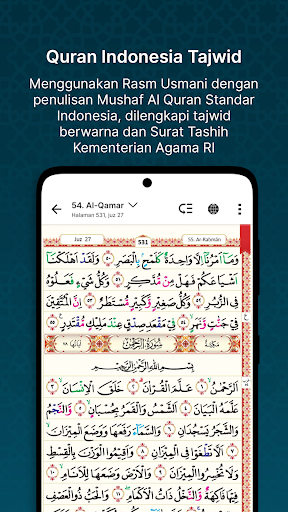 Quran Indonesia Tajwid
Menggunakan Rasm Usmani dengan
penulisan Mushaf Al Quran Standar
Indonesia, dilengkapi tajwid
berwarna dan Surat Tashih
Kementerian Agama RI
54. Al-Qamar
Halaman 531, juz 27
Juz 27
531
55. Ar-Rahmān
وَمَآ اَمْرُنَآ اِلَّا وَاحِدَةٌ كَلَمْحٍۢ بِالْبَصَرِ ٥٠ وَلَقَدْ اَهْلَكْنَآ
اَشْيَاعَكُمْ فَهَلْ مِنْ مُّدَّكِرٍ ٥١ وَكُلُّ شَيْءٍ فَعَلُوْهُ
فِى الزُّبُرِ ٥٢ وَكُلُّ صَغِيْرٍ وَّكَبِيْرٍ مُّسْتَطَرٌ ٥٣ اِنَّ الْمُتَّقِيْنَ
فِيْ جَنّٰتٍ وَّنَهَرٍ ٥٤ فِيْ مَقْعَدِ صِدْقٍ عِنْدَ مَلِيْكٍ مُّقْتَدِرٍ ٥٥
مكيّة
سُوْرَةُ الرَّحْمٰنِ
اٰياتها ٧٨
بِسْمِ اللّٰهِ الرَّحْمٰنِ الرَّحِيْمِ
اَلرَّحْمٰنُ ١ عَلَّمَ الْقُرْاٰنَ ٢ خَلَقَ الْاِنْسَانَ ٣
عَلَّمَهُ الْبَيَانَ ٤ اَلشَّمْسُ وَالْقَمَرُ بِحُسْبَانٍ ٥ وَالنَّجْمُ
وَالشَّجَرُ يَسْجُدَانِ ٦ وَالسَّمَآءَ رَفَعَهَا وَوَضَعَ الْمِيْزَانَ ٧
اَلَّا تَطْغَوْا فِى الْمِيْزَانِ ٨ وَاَقِيْمُوا الْوَزْنَ بِالْقِسْطِ
وَلَا تُخْسِرُوا الْمِيْزَانَ ٩ وَالْاَرْضَ وَضَعَهَا لِلْاَنَامِ ١٠
فِيْهَا فَاكِهَةٌ وَّالنَّخْلُ ذَاتُ الْاَكْمَامِ ١١ وَالْحَبُّ ذُو الْعَصْفِ